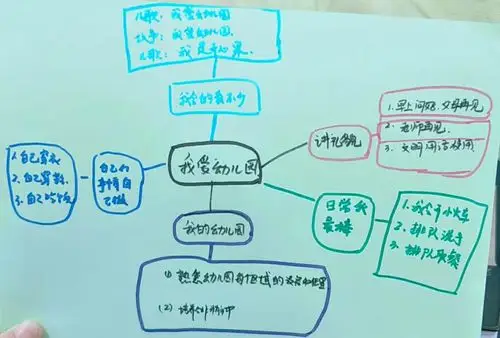 儿歌：我爱幼儿园
故事：我爱幼儿园.
儿歌：我是开心果.
我会的真不少
我爱幼儿园
讲礼貌
1.早上问好.父母再见
2. 老师再见.
3. 文明用语使用
自己的
事情自
己做
1.自己穿衣
2.自己穿鞋.
3.自己吃饭
日常我
最棒
1.我会开小火车
2.排队洗手
3.排队取餐
我的幼儿园
(1) 熟悉幼儿园各区域的位置
(2) 培养